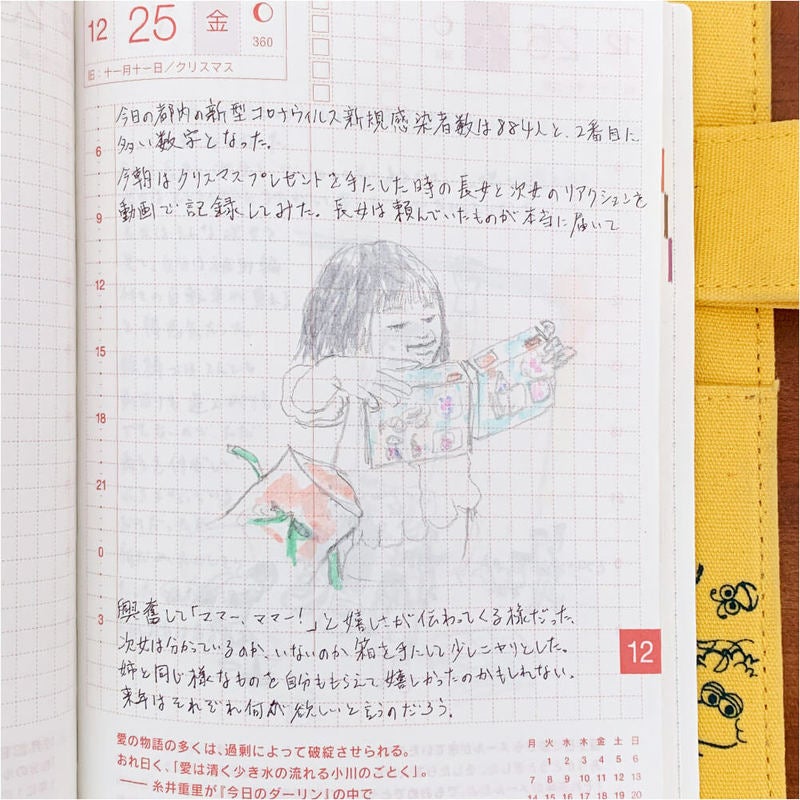 12 25 金
360
旧：十一月十一日／クリスマス
今日の都内の新型コロナウイルス新規感染者数は884人と、2番目に
多い数字となった。
今朝はクリスマスプレゼントを手にした時の長女と次女のリアクションを
動画で記録してみた。長女は頼んでいたものが本当に届いて
6
9
12
15
18
21
0
3
興奮して「ママー、ママー！」と嬉しさが伝わってくる様だった。
次女は分かっているのか、いないのか箱を手にして少しニヤリとした。
姉と同じ様なものを自分ももらえて嬉しかったのかもしれない。
来年はそれぞれ何が欲しいと言うのだろう。
12
愛の物語の多くは、過剰によって破綻させられる。
おれ曰く、「愛は清く少き水の流れる小川のごとく」。
—— 糸井重里が『今日のダーリン』の中で
月 火 水 木 金 土 日
1 2 3 4 5 6
7 8 9 10 11 12 13
14 15 16 17 18 19 20